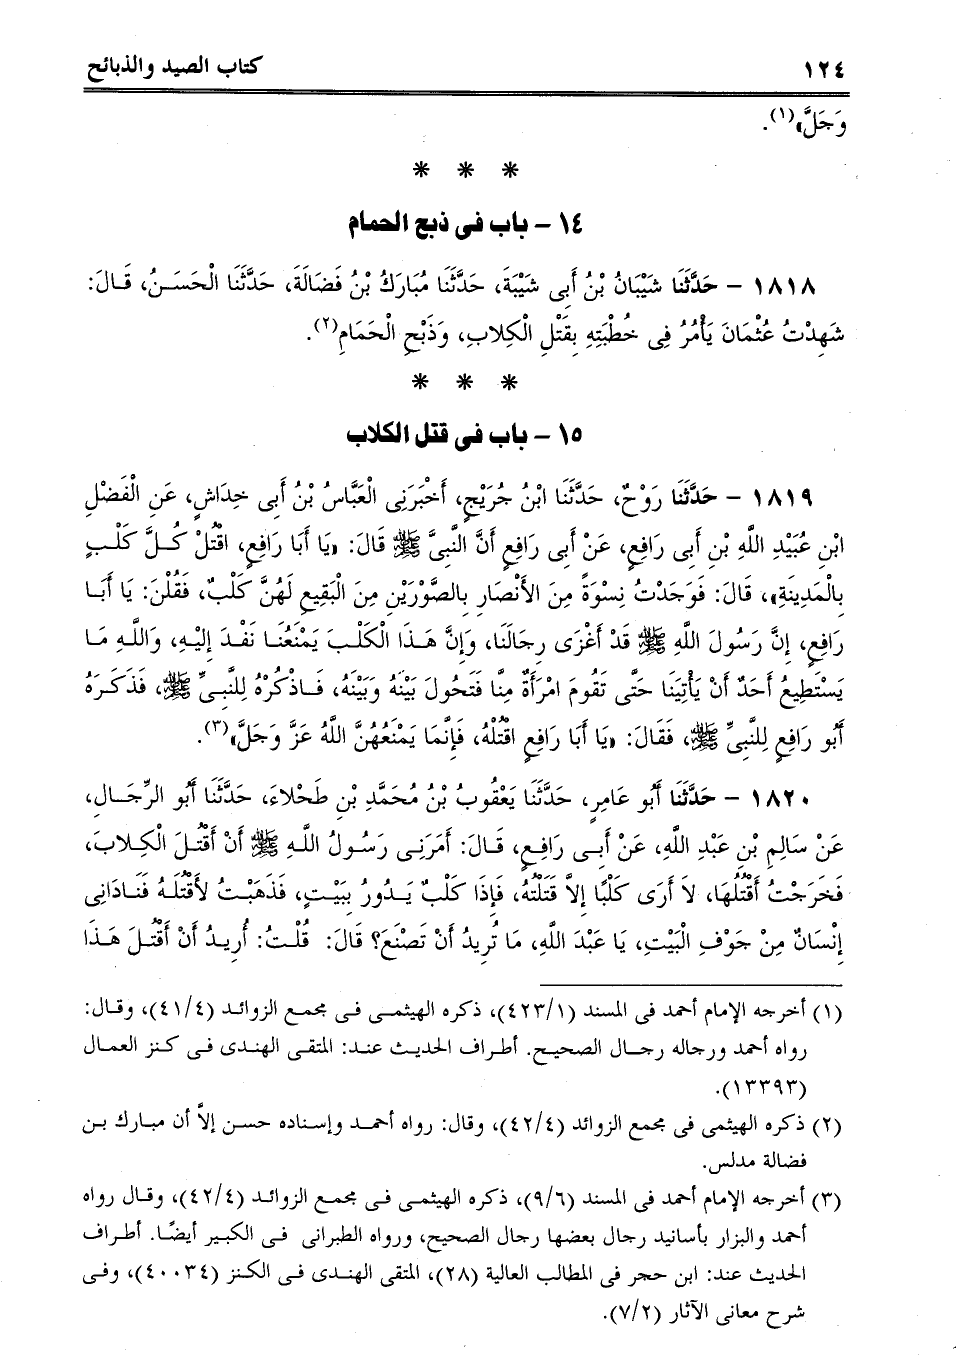 ١٢٤ كتاب الصيد والذبائح
وَجَلَّ»(١).
* * *
١٤ – باب فى ذبح الحمام
١٨١٨ – حَدَّثَنَا شَيْبَانُ بْنُ أَبِى شَيْبَةَ، حَدَّثَنَا مُبَارَكُ بْنُ فَضَالَةَ، حَدَّثَنَا الْحَسَنُ، قَالَ:
شَهِدْتُ عُثْمَانَ يَأْمُرُ فِى خُطْبَتِهِ بِقَتْلِ الْكِلابِ، وَذَبْحِ الْحَمَامِ(٢).
* * *
١٥ – باب فى قتل الكلاب
١٨١٩ – حَدَّثَنَا رَوْحٌ، حَدَّثَنَا ابْنُ جُرَيْجٍ، أَخْبَرَنِى الْعَبَّاسُ بْنُ أَبِى خِدَاشٍ، عَنِ الْفَضْلِ
ابْنِ عُبَيْدِ اللَّهِ بْنِ أَبِى رَافِعٍ، عَنْ أَبِى رَافِعٍ أَنَّ النَّبِىَّ ﷺ قَالَ: «يَا أَبَا رَافِعٍ، اقْتُلْ كُلَّ كَلْبٍ
بِالْمَدِينَةِ»، قَالَ: فَوَجَدْتُ نِسْوَةً مِنَ الأَنْصَارِ بِالصَّوْرَيْنِ مِنَ الْبَقِيعِ لَهُنَّ كَلْبٌ، فَقُلْنَ: يَا أَبَا
رَافِعٍ، إِنَّ رَسُولَ اللَّهِ ﷺ قَدْ أَغْزَى رِجَالَنَا، وَإِنَّ هَذَا الْكَلْبَ يَمْنَعُنَا نَفْدَ إِلَيْهِ، وَاللَّهِ مَا
يَسْتَطِيعُ أَحَدٌ أَنْ يَأْتِيَنَا حَتَّى تَقُومَ امْرَأَةٌ مِنَّا فَتَحُولَ بَيْنَهُ وَبَيْنَهُ، فَاذْكُرْهُ لِلنَّبِىِّ ﷺ، فَذَكَرَهُ
أَبُو رَافِعٍ لِلنَّبِىِّ ﷺ، فَقَالَ: «يَا أَبَا رَافِعٍ اقْتُلْهُ، فَإِنَّمَا يَمْنَعُهُنَّ اللَّهُ عَزَّ وَجَلَّ»(٣).
١٨٢٠ – حَدَّثَنَا أَبُو عَامِرٍ، حَدَّثَنَا يَعْقُوبُ بْنُ مُحَمَّدِ بْنِ طَحْلاءَ، حَدَّثَنَا أَبُو الرِّجَالِ،
عَنْ سَالِمِ بْنِ عَبْدِ اللَّهِ، عَنْ أَبِى رَافِعٍ، قَالَ: أَمَرَنِى رَسُولُ اللَّهِ ﷺ أَنْ أَقْتُلَ الْكِلابَ،
فَخَرَجْتُ أَقْتُلُهَا، لاَ أَرَى كَلْبًا إِلاَّ قَتَلْتُهُ، فَإِذَا كَلْبٌ يَدُورُ بِبَيْتٍ، فَذَهَبْتُ لأَقْتُلَهُ فَنَادَانِى
إِنْسَانٌ مِنْ جَوْفِ الْبَيْتِ، يَا عَبْدَ اللَّهِ، مَا تُرِيدُ أَنْ تَصْنَعَ؟ قَالَ: قُلْتُ: أُرِيدُ أَنْ أَقْتُلَ هَذَا
(١) أخرجه الإمام أحمد فى المسند (٤٢٣/١)، ذكره الهيثمى فى مجمع الزوائد (٤١/٤)، وقال:
رواه أحمد ورجاله رجال الصحيح. أطراف الحديث عند: المتقى الهندى فى كنز العمال
(١٣٣٩٣).
(٢) ذكره الهيثمى فى مجمع الزوائد (٤٢/٤)، وقال: رواه أحمد وإسناده حسن إلاَّ أن مبارك بن
فضالة مدلس.
(٣) أخرجه الإمام أحمد فى المسند (٩/٦)، ذكره الهيثمى فى مجمع الزوائد (٤٢/٤)، وقال رواه
أحمد والبزار بأسانيد رجال بعضها رجال الصحيح، ورواه الطبرانى فى الكبير أيضًا. أطراف
الحديث عند: ابن حجر فى المطالب العالية (٢٨)، المتقى الهندى فى الكنز (٤٠٠٣٤)، وفى
شرح معانى الآثار (٧/٢).